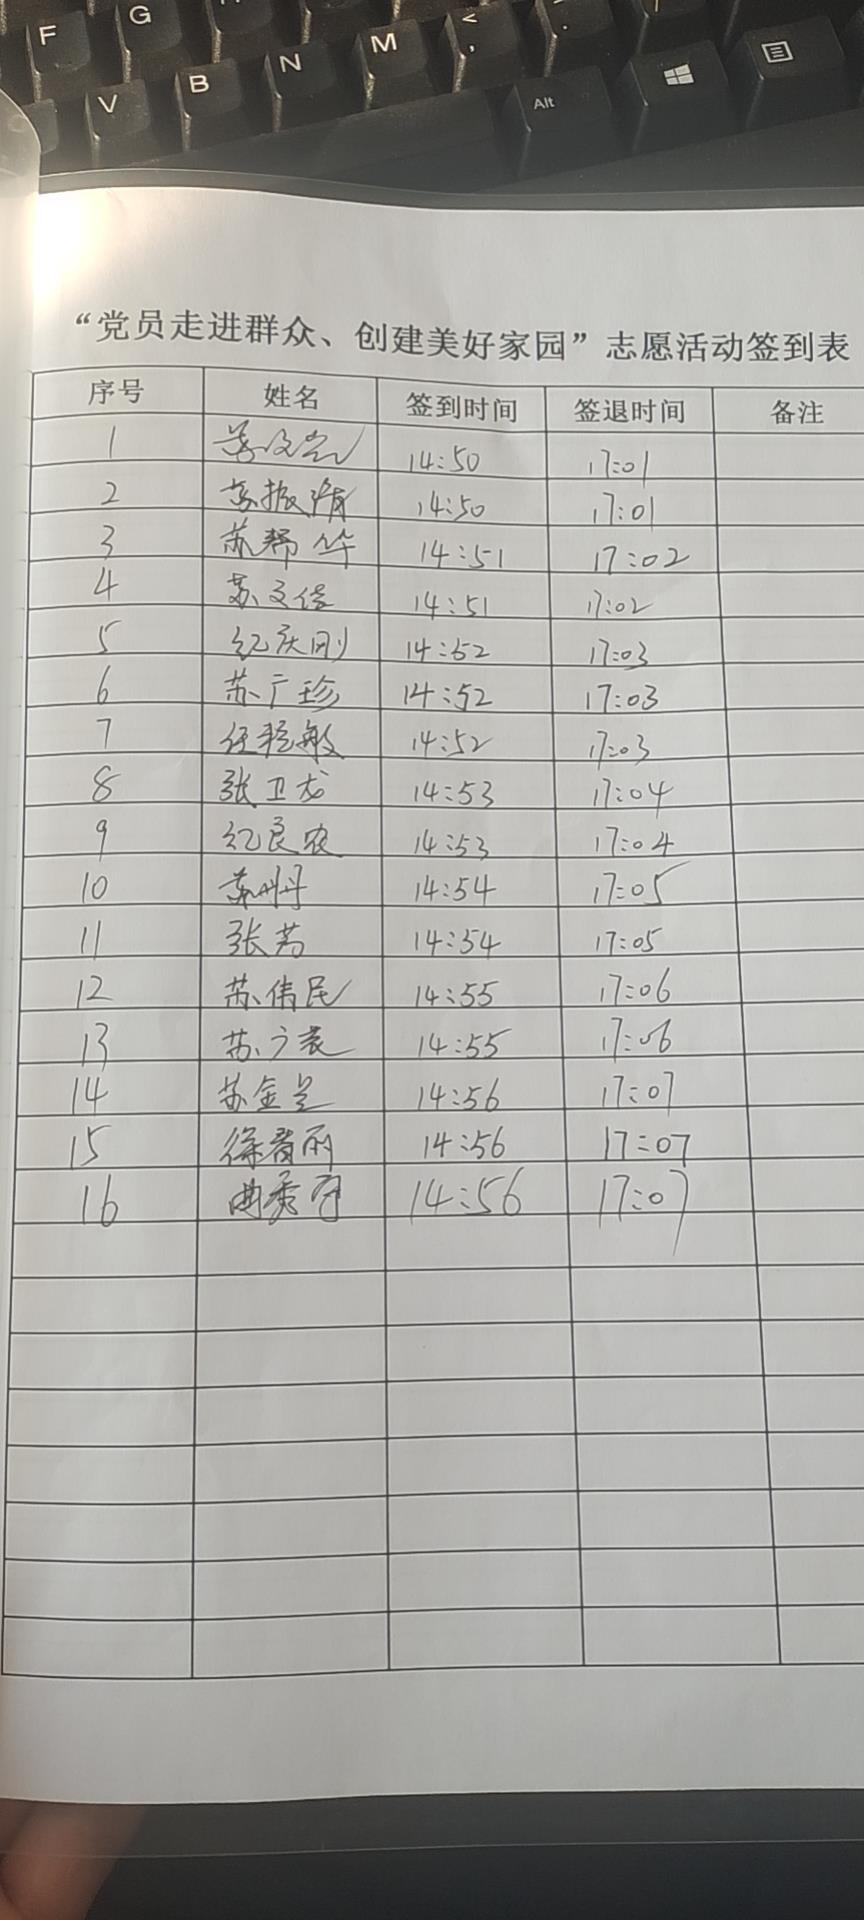 F G
V B N M < , .
Alt
“党员走进群众、创建美好家园”志愿活动签到表
序号 姓名 签到时间 签退时间 备注
1 14:50 17:01
2 苏振清 14:50 17:01
3 苏帮华 14:51 17:02
4 苏文佳 14:51 17:02
5 纪庆刚 14:52 17:03
6 苏广珍 14:52 17:03
7 任艳敏 14:52 17:03
8 张卫龙 14:53 17:04
9 纪良农 14:53 17:04
10 苏 丹 14:54 17:05
11 张 14:54 17:05
12 苏伟民 14:55 17:06
13 苏广 14:55 17:06
14 苏金 14:56 17:07
15 徐 丽 14:56 17:07
16 曲秀 14:56 17:07